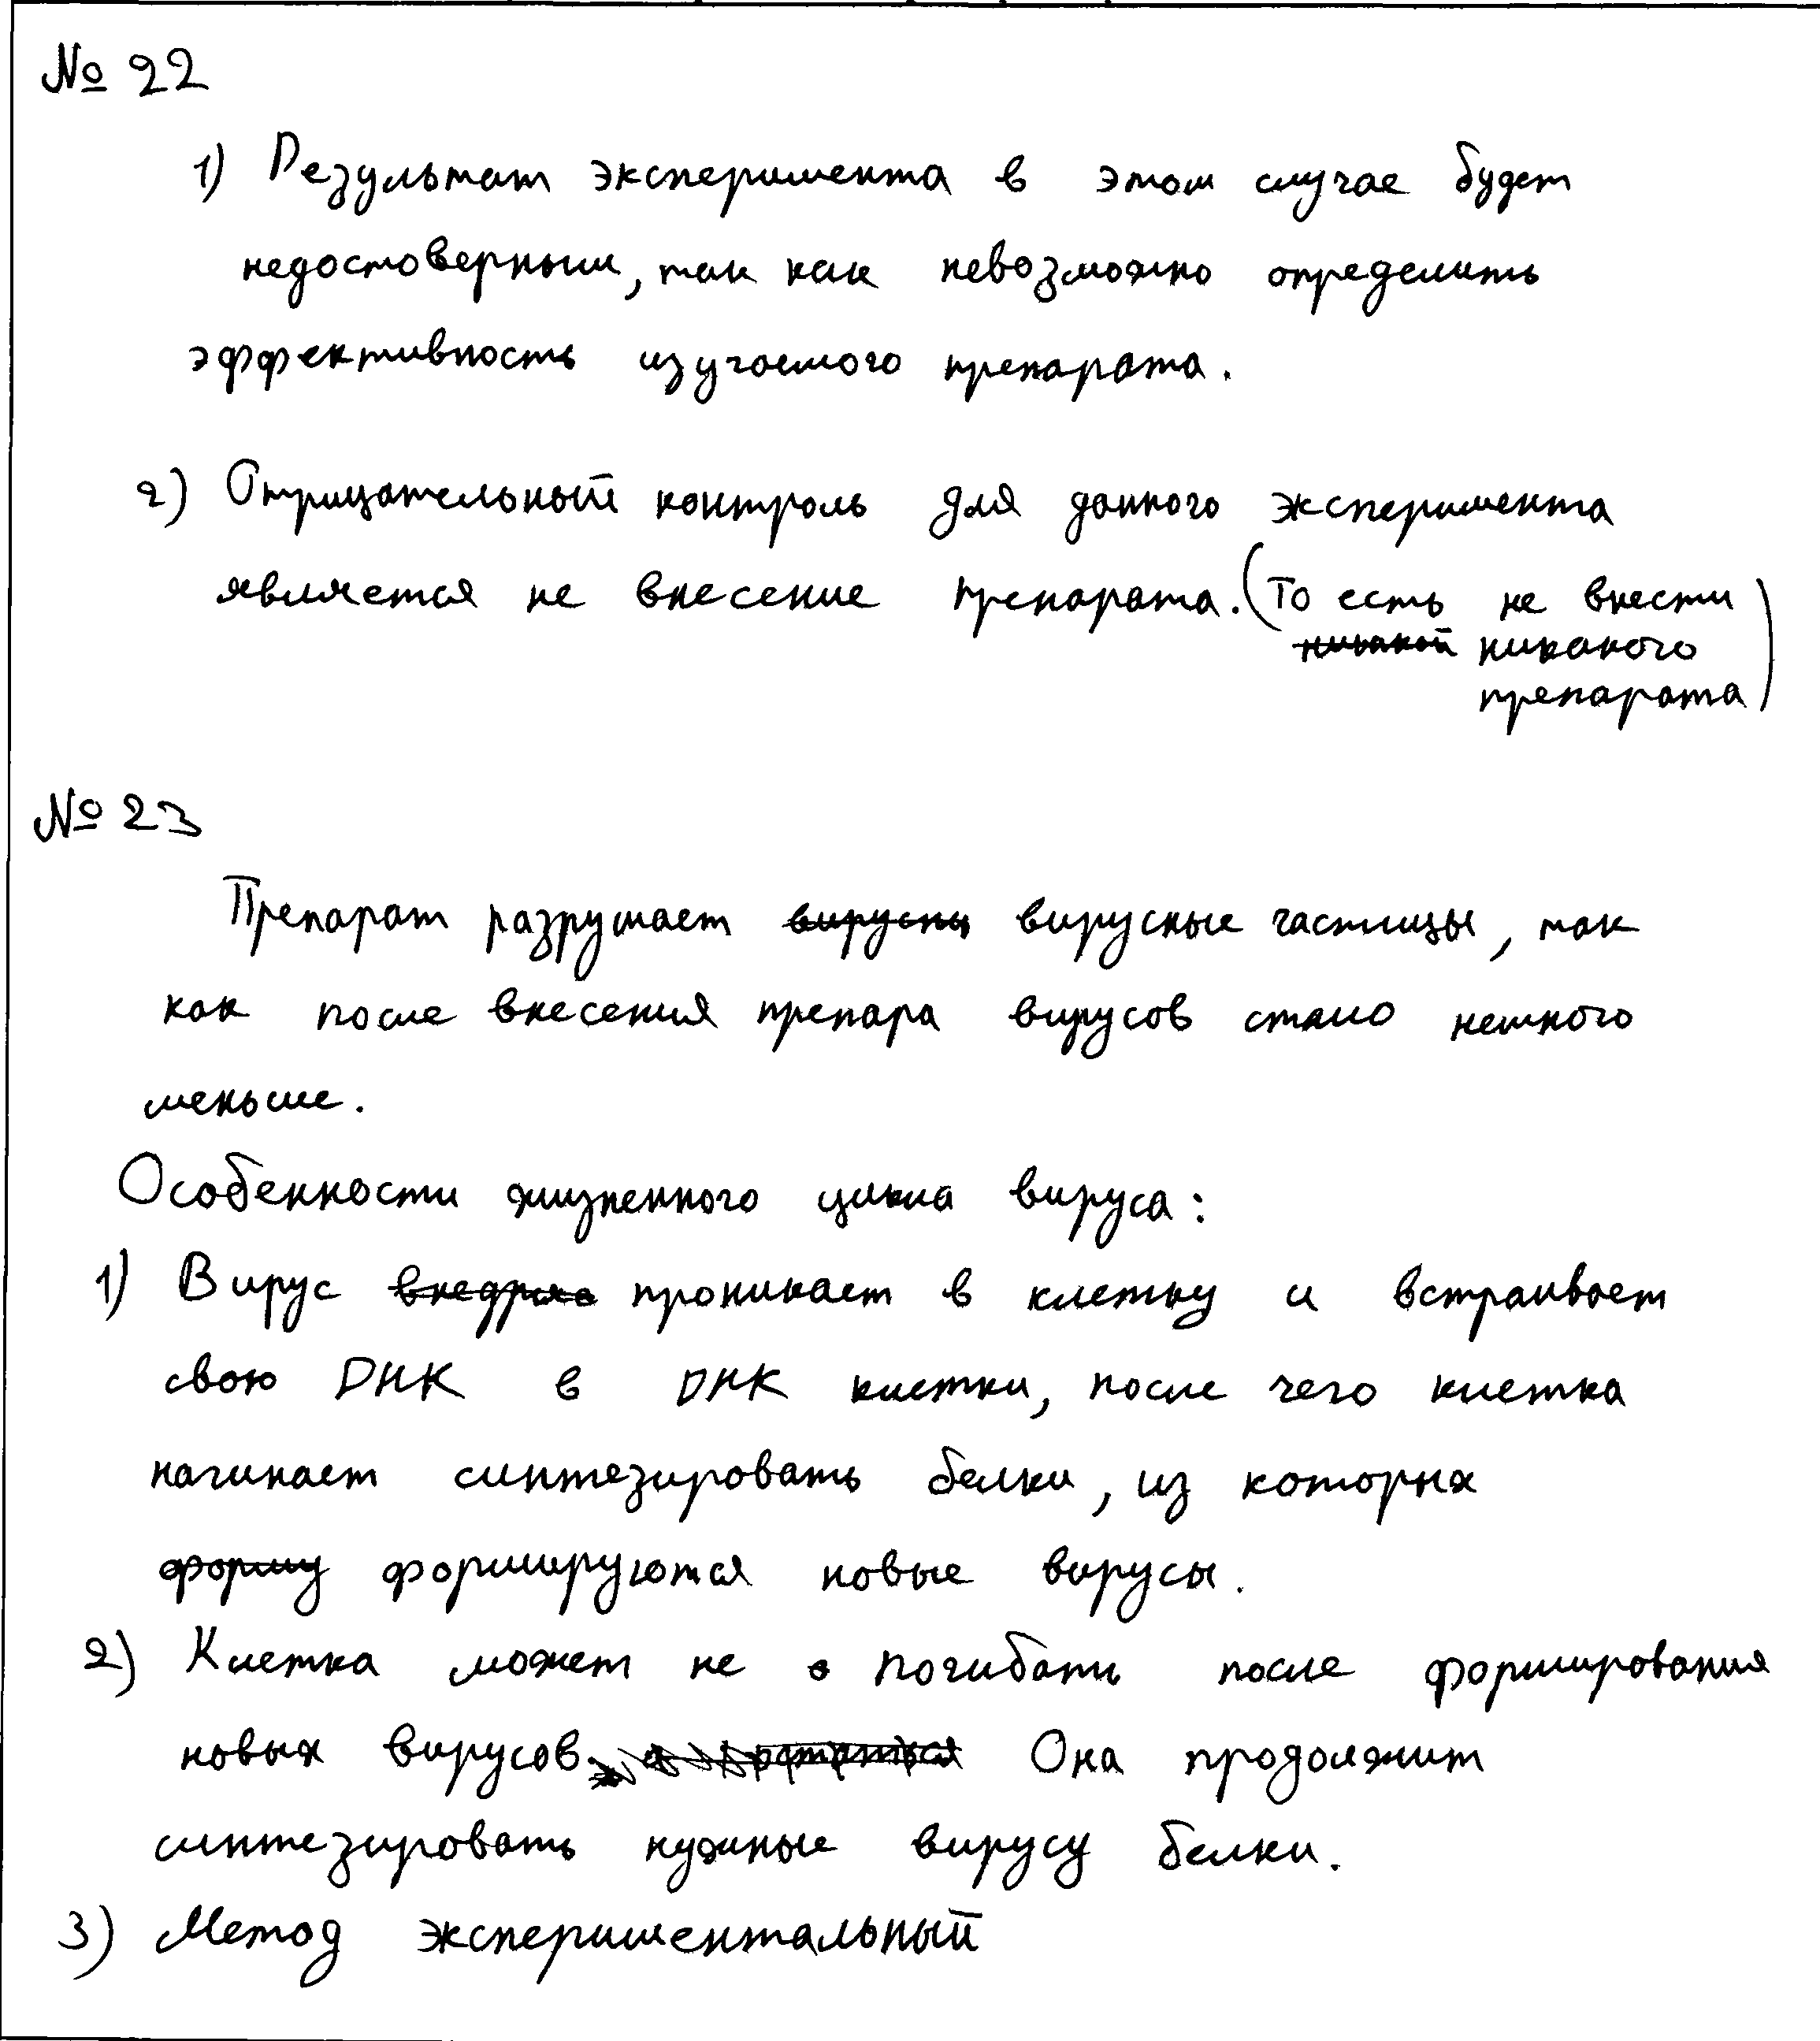 № 22
1) Результат эксперимента в этом случае будет
недостоверным, так как невозможно определить
эффективность изучаемого препарата.
2) Отрицательный контроль для данного эксперимента
является не внесение препарата. (То есть не внести
никакой никакого
препарата)
№ 23
Препарат разрушает вирусны вирусные частицы, так
как после внесения препара вирусов стало немного
меньше.
Особенности жизненного цикла вируса:
1) Вирус внедряе проникает в клетку и встраивает
свою ДНК в ДНК клетки, после чего клетка
начинает синтезировать белки, из которых
форму формируются новые вирусы.
2) Клетка может не погибать после формирования
новых вирусов. Она продолжит
синтезировать нужные вирусу белки.
3) Метод экспериментальный